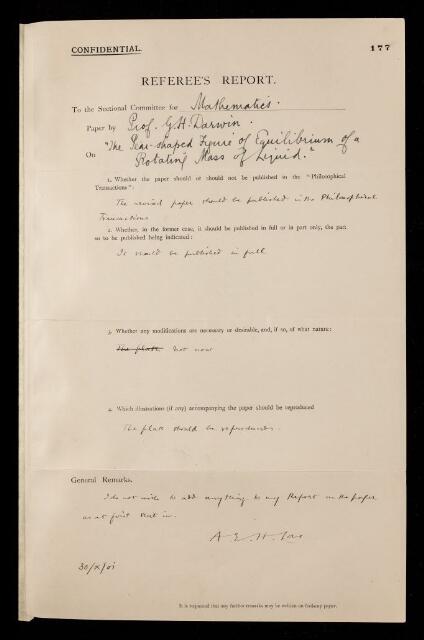 CONFIDENTIAL.
177
REFEREE'S REPORT.
To the Sectional Committee for Mathematics.
Paper by Prof. G.H. Darwin.
On "The Pear-shaped Figure of Equilibrium of a
Rotating Mass of Liquid."
1. Whether the paper should or should not be published in the "Philosophical
Transactions":
The revised paper should be published in the Philosophical
Transactions
2. Whether, in the former case, it should be published in full or in part only, the part
so to be published being indicated:
It should be published in full
3. Whether any modifications are necessary or desirable, and, if so, of what nature:
The plate Not now
4. Which illustrations (if any) accompanying the paper should be reproduced
The plate should be reproduced.
General Remarks.
I do not wish to add anything to my Report on the paper
as at first sent in.
A E H Love
30/X/01
It is requested that any further remarks may be written on foolscap paper.